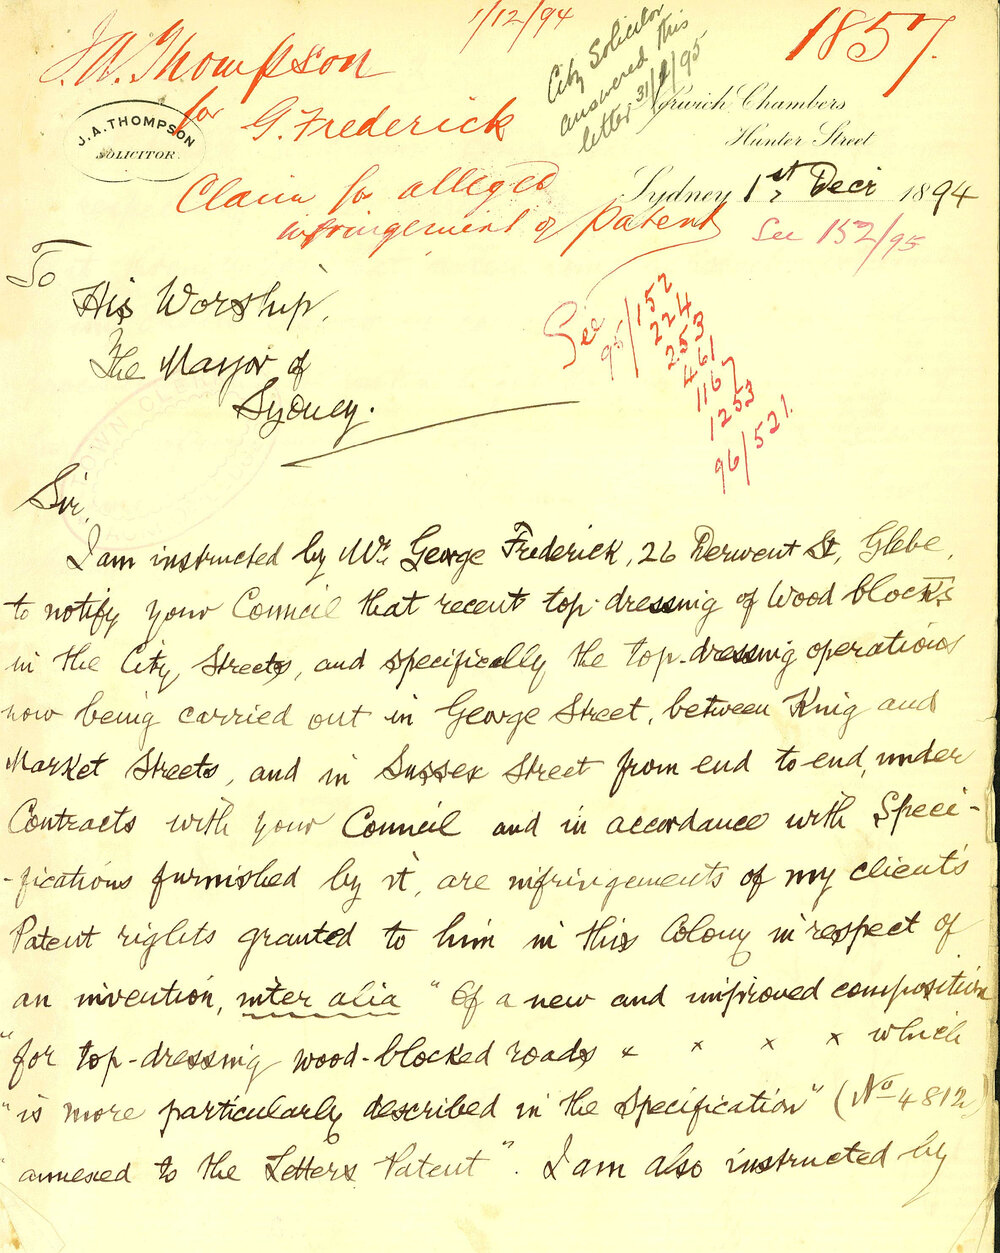 1/12/94
1857.
J.A. Thompson
for G. Frederick
City Solicitor
answered this
letter 31/1/95
J.A. THOMPSON
SOLICITOR.
Norwich Chambers
Hunter Street
Claim for alleged
infringement of patent
Sydney 1st Decr 1894
See 152/95
To
His Worship,
The Mayor of
Sydney.
See 95/152
224
253
461
1167
1253
96/521.
TOWN CLERK
Sir,
I am instructed by Mr. George Frederick, 26 Derwent St, Glebe,
to notify your Council that recent top-dressing of Wood blocks
in the City Streets, and specifically the top-dressing operations
now being carried out in George Street, between King and
Market Streets, and in Sussex Street from end to end, under
Contracts with your Council and in accordance with Speci-
-fications furnished by it, are infringements of my client's
Patent rights granted to him in this Colony in respect of
an invention, inter alia "Of a new and improved composition
"for top-dressing wood-blocked roads x x x x which
"is more particularly described in the Specification" (No 4812)
"annexed to the Letters Patent". I am also instructed by